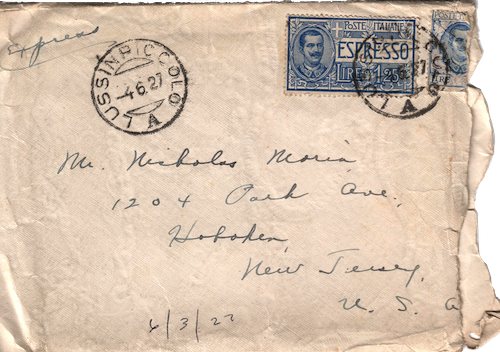 Express
LUSSINPICCOLO
-4.6.27
A
POSTE ITALIANE
ESPRESSO
LIRE 1,25
POSTE
A
Mr. Nicholas Morin
1204 Park Ave.,
Hoboken
New Jersey,
U. S. A
6/3/27